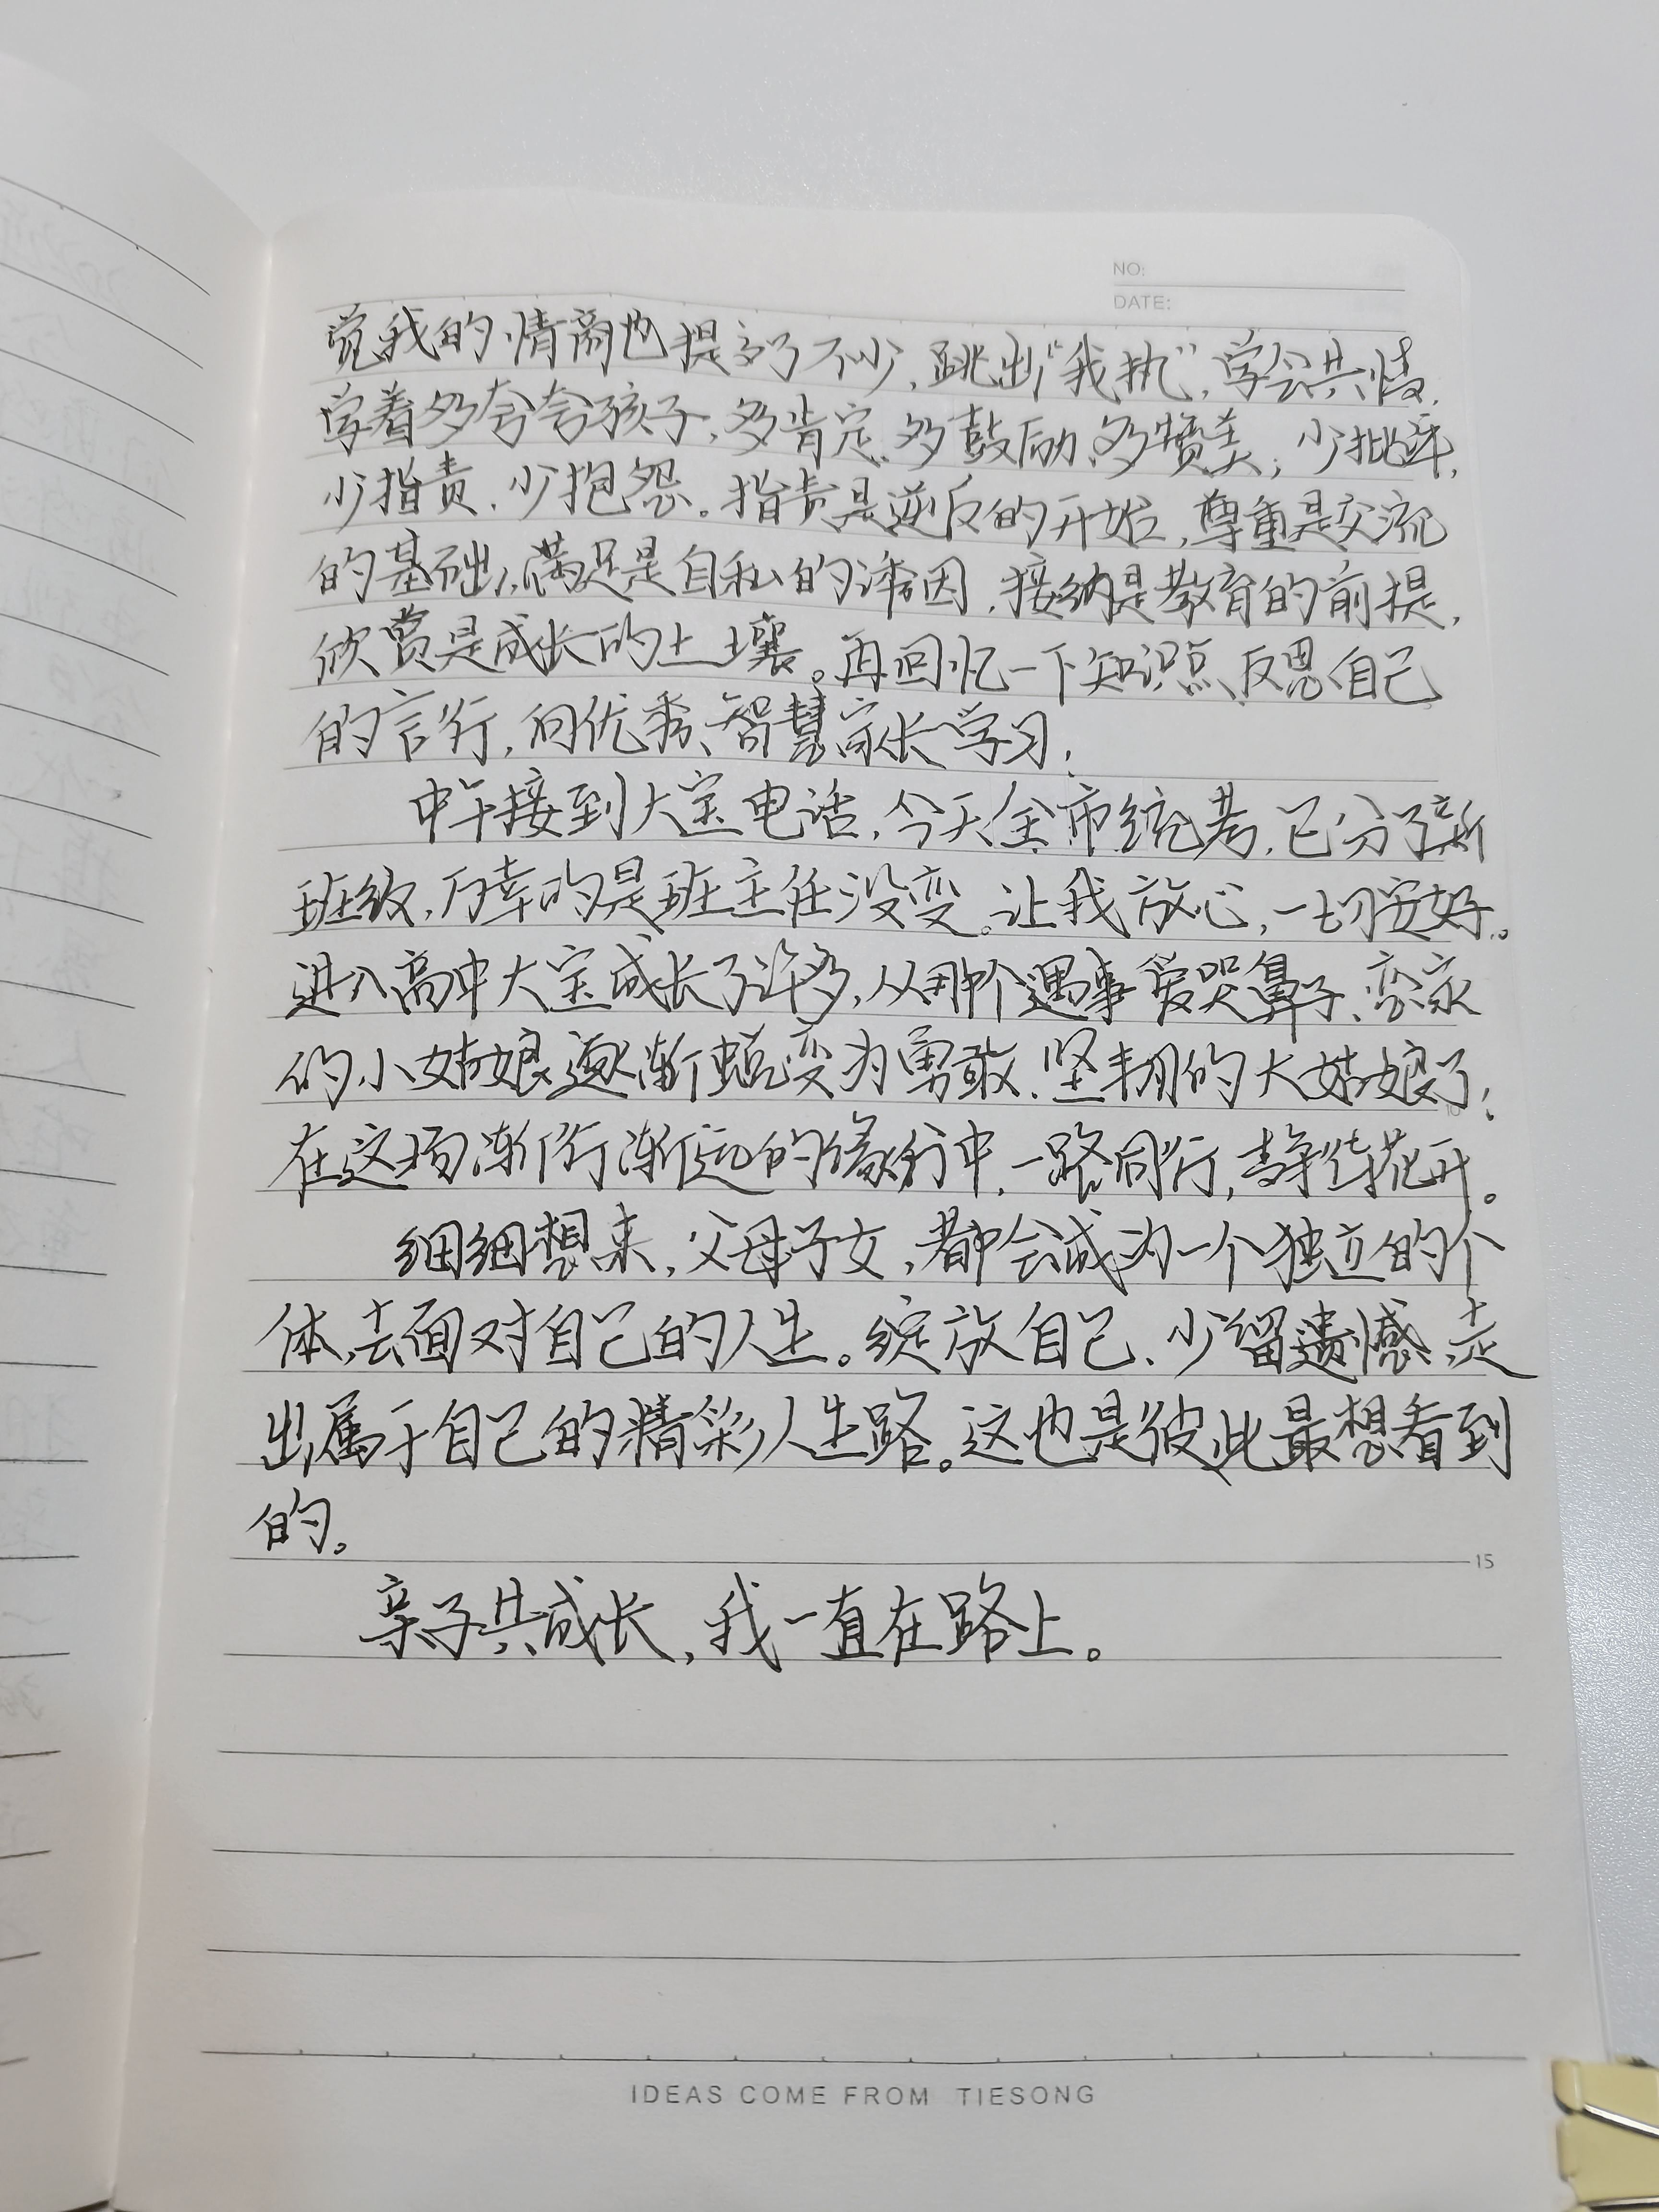 NO:
DATE:
觉我的情商也提高了不少,跳出“我执”,学会共情,
学着多夸夸孩子,多肯定、多鼓励、多赞美;少批评,
少指责、少抱怨。指责是逆反的开始,尊重是交流
的基础,满足是自私的诱因,接纳是教育的前提,
欣赏是成长的土壤。再回忆一下知识点,反思自己
的言行,向优秀、智慧家长学习!
中午接到大宝电话,今天全市统考,已分了新
班级,万幸的是班主任没变。让我放心,一切安好。
进入高中大宝成长了许多,从那个遇事爱哭鼻子、恋家
的小姑娘逐渐蜕变为勇敢、坚韧的大姑娘了!
在这场渐行渐远的修行中,一路同行,静待花开。
细细想来,父母子女,都会成为一个独立的个
体,去面对自己的人生。绽放自己、少留遗憾,走
出属于自己的精彩人生路。这也是彼此最想看到
的。
15
亲子共成长,我一直在路上。
10
IDEAS COME FROM TIESONG